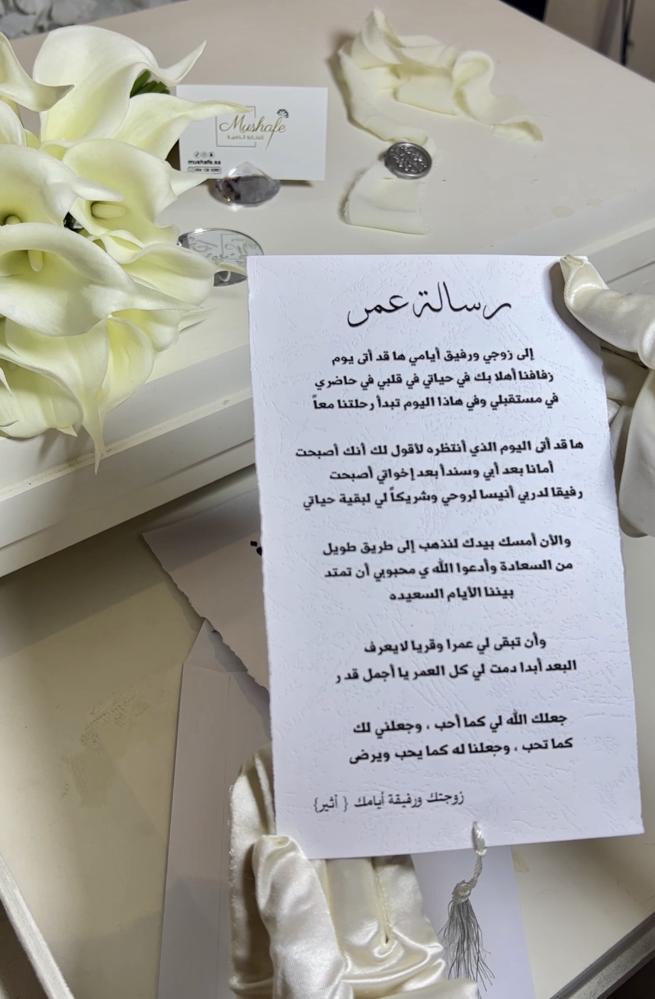 Mushafe
mushafe.sa
رسالة عمر
إلى زوجي ورفيق أيامي ها قد أتى يوم
زفافنا أهلا بك في حياتي في قلبي في حاضري
في مستقبلي وفي هاذا اليوم تبدأ رحلتنا معاً
ها قد أتى اليوم الذي أنتظره لأقول لك أنك أصبحت
أمانا بعد أبي وسنداً بعد إخواتي أصبحت
رفيقا لدربي أنيسا لروحي وشريكاً لي لبقية حياتي
والآن أمسك بيدك لنذهب إلى طريق طويل
من السعادة وأدعوا الله ي محبوبي أن تمتد
بيننا الأيام السعيده
وأن تبقى لي عمرا وقربا لايعرف
البعد أبدا دمت لي كل العمر يا أجمل قدر
جعلك الله لي كما أحب ، وجعلني لك
كما تحب ، وجعلنا له كما يحب ويرضى
زوجتك ورفيقة أيامك { أثير}